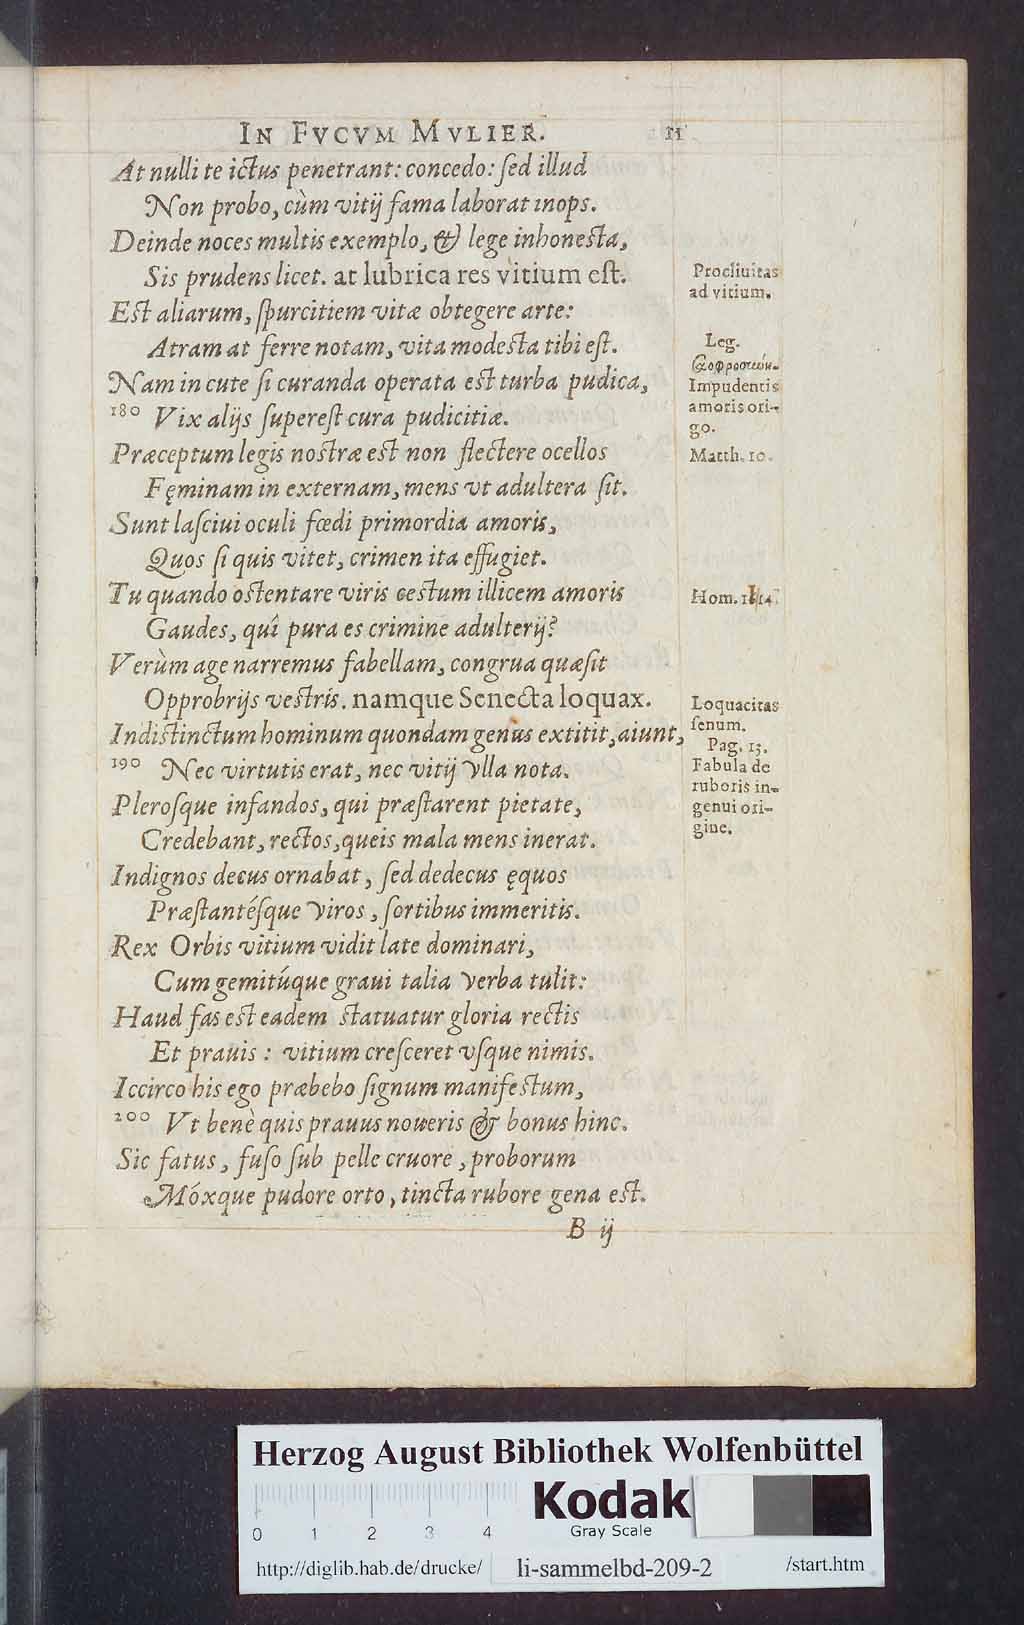 IN FVCVM MVLIER. 11
At nulli te ictus penetrant: concedo: ſed illud
Non probo, cùm vitij fama laborat inops.
Deinde noces multis exemplo, & lege inhonesta,
Sis prudens licet. at lubrica res vitium eſt.
Procliuitas
ad vitium.
Est aliarum, ſpurcitiem vitæ obtegere arte:
Atram at ferre notam, vita modesta tibi eſt.
Leg.
Nam in cute ſi curanda operata est turba pudica,
Impudentis
180 Vix alijs ſupereſt cura pudicitiæ.
amoris ori-
go.
Præceptum legis nostræ est non flectere ocellos
Matth. 10.
Fęminam in externam, mens vt adultera ſit.
Sunt laſciui oculi fœdi primordia amoris,
Quos ſi quis vitet, crimen ita effugiet.
Tu quando ostentare viris cestum illicem amoris
Hom.
Gaudes, quî pura es crimine adulterij?
Verùm age narremus fabellam, congrua quæſit
Opprobrijs vestris. namque Senecta loquax.
Loquacitas
ſenum.
Indistinctum hominum quondam genus extitit, aiunt,
Pag. 13.
190 Nec virtutis erat, nec vitij vlla nota.
Fabula de
ruboris in-
Pleroſque infandos, qui præſtarent pietate,
genui ori-
gine.
Credebant, rectos, queis mala mens inerat.
Indignos decus ornabat, ſed dedecus ęquos
Præſtantéſque viros, ſortibus immeritis.
Rex Orbis vitium vidit late dominari,
Cum gemitúque graui talia verba tulit:
Haud fas est eadem statuatur gloria rectis
Et prauis: vitium creſceret vſque nimis.
Iccirco his ego præbebo ſignum manifestum,
200 Vt benè quis prauus noueris & bonus hinc.
Sic fatus, fuſo ſub pelle cruore, proborum
Móxque pudore orto, tincta rubore gena est.
B ij
Herzog August Bibliothek Wolfenbüttel
0 1 2 3 4
Kodak
Gray Scale
http://diglib.hab.de/drucke/ li-sammelbd-209-2 /start.htm